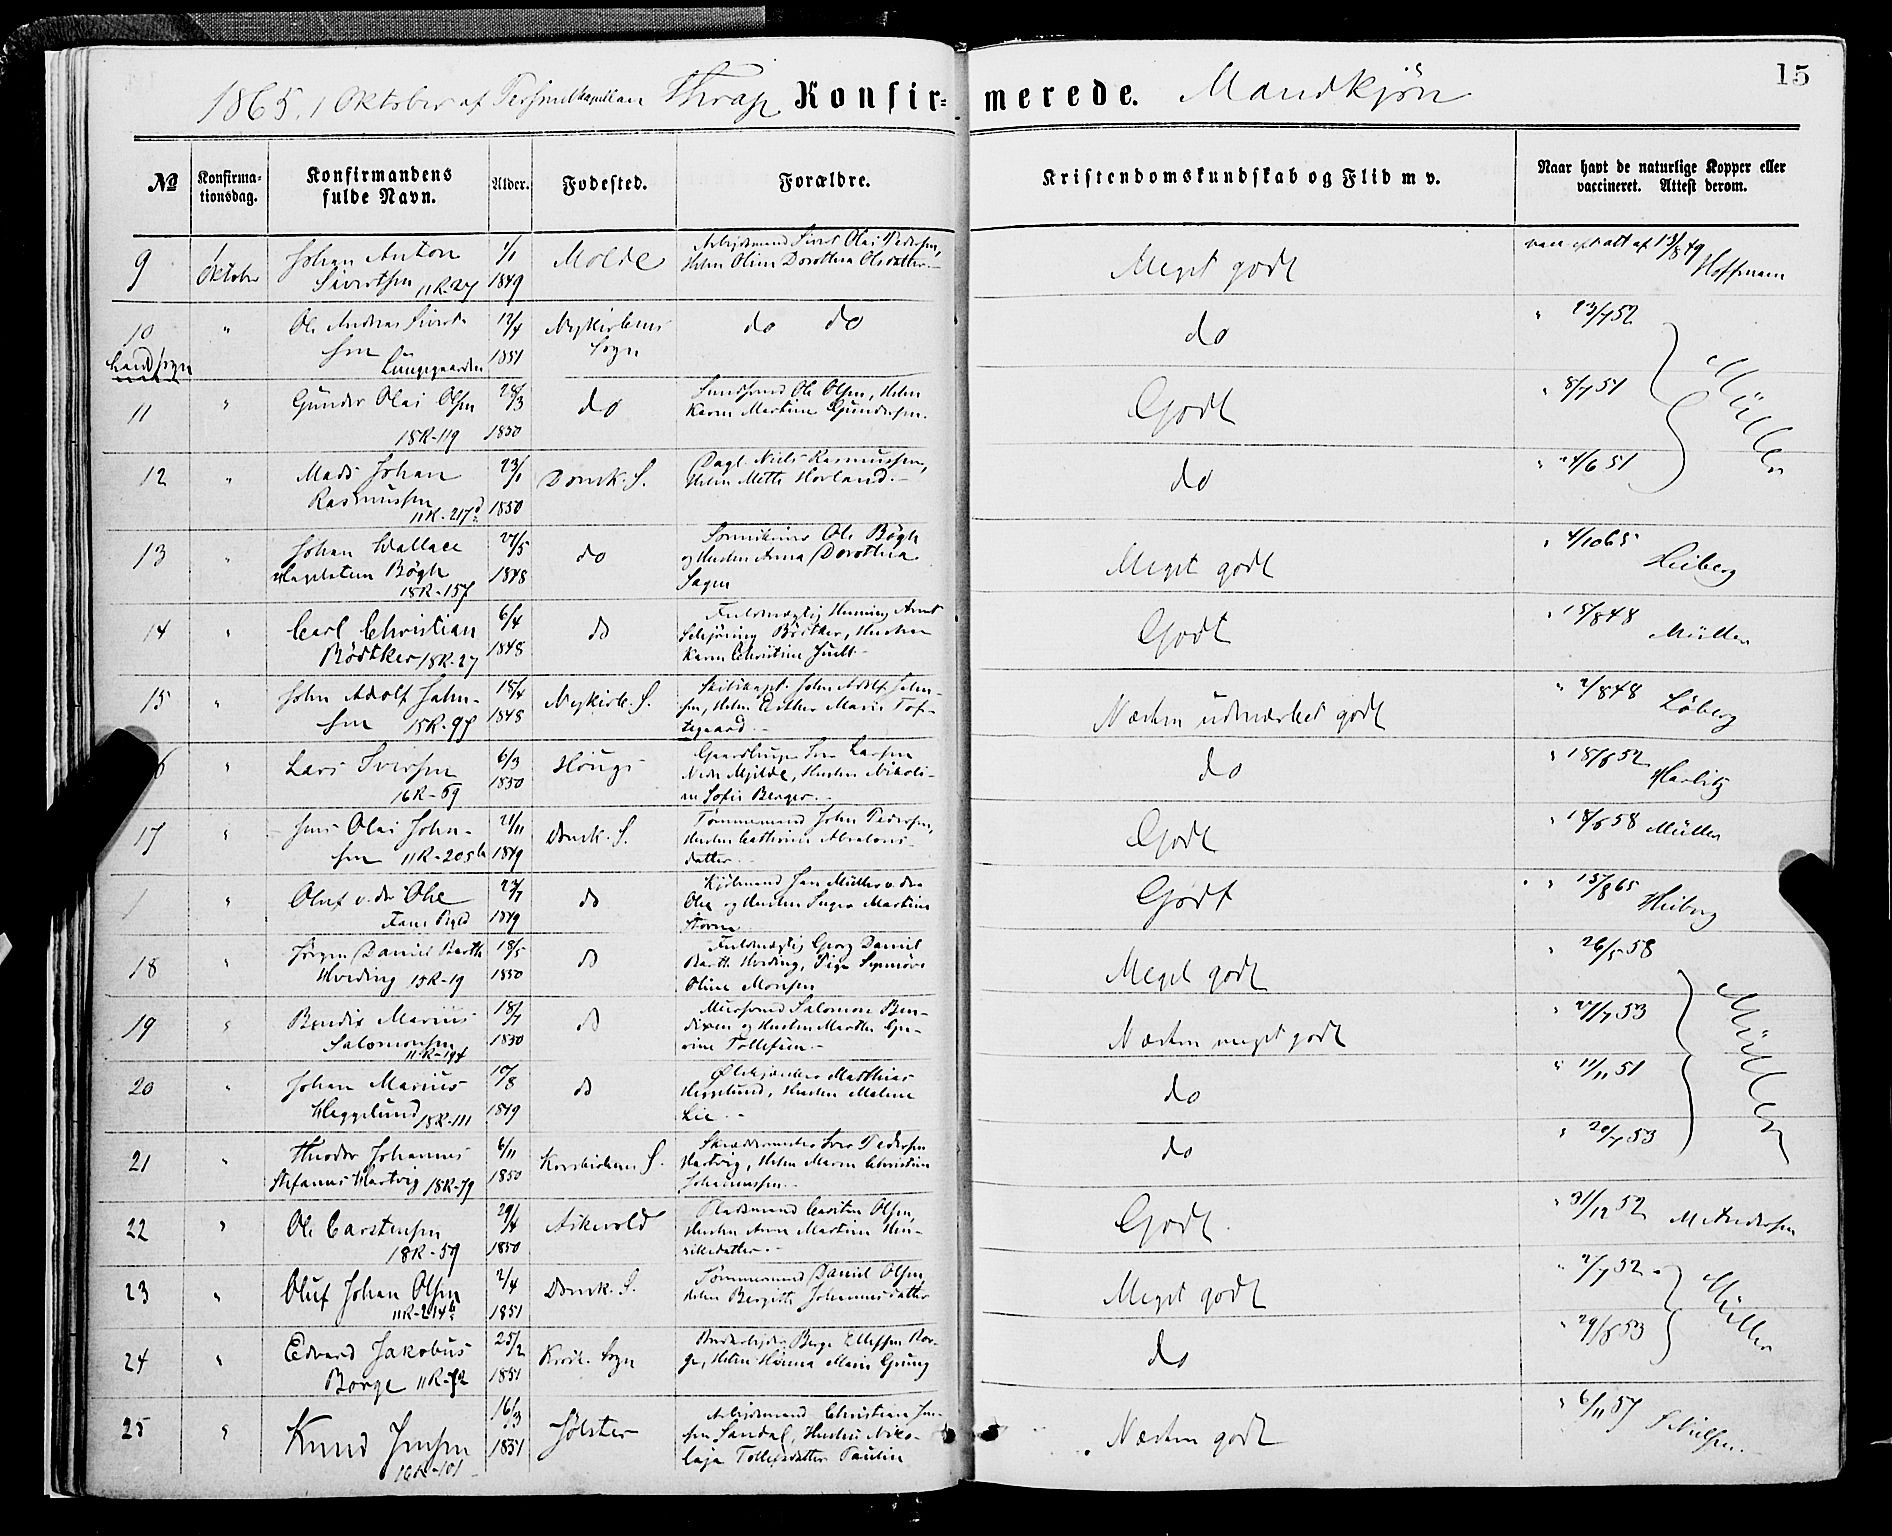 15
1865. 1 Oktober af Personelkapellan Thrap Konfir=merede. Mandkjøn
No Konfirmationsdag. Konfirmandens fulde Navn. Alder. Fødested. Forældre. Kristendomskundskab og Flid m v. Naar havt de naturlige Kopper eller vaccineret. Attest derom.
9 1 Oktober Johan Anton Sivertsen 11R-27 1/1 1849 Molde Arbeidsmand Sivert Olai Pedersen, Helen Oline Dorothea Olsdatter.- Meget godt vacc eft att af 13/8 49 Hoffmann
10 Landsogn " Ole Andreas Sivertsen Lungegaarden 12/4 1851 Nykirkens Sogn do do do " 23/7 52
11 " Gunder Olai Olsen 18R-119 28/3 1850 do Ole Olsen, Karen Martine Gundersen. Godt " 8/7 51 Müller
12 " Mads Johan Rasmussen 11R-217d 23/1 1850 Domk. S. Dagl. Niels Rasmussen, Mette Hovland.- do " 24/6 51
13 " Johan Wallace Hagelsteen Bøgh 18R-157 27/5 1848 do Ole Bøgh og Hustru Anna Dorothea Sagen Meget godt " 4/10 65 Heiberg
14 " Carl Christian Bødtker 18R-27 6/4 1848 do Fuldmægtig Henning Arnt Schjøning Bødtker, Hustru Karen Christine Juell- Godt " 15/8 48 Müller
15 " John Adolf Jahnsen 15R-99 18/4 1848 Nykirk. S. Skibskapt. John Adolf Jahnsen, Esther Marie Toftegaard.- Næsten udmærket godt " 2/8 48 Løberg
" Lars Iversen 16R-69 6/3 1850 Houge Iver Larsen Nedre Mjelde, Hustru Nikoline Sofie Berger.- do " 18/6 52 Harbitz
17 " Jens Olai Johnsen 11R-205b 21/11 1849 Domk. S. Tømmermand John Pedersen, Hustru Cathrine Absalonsdatter.- Godt " 18/6 58 Müller
" Oluf v. der Ohe 23/7 1849 do Kjøbmand Jan Müller v. der Ohe og Hustru Inger Martine Godt " 15/8 65 Heiberg
18 " Jørgen Daniel Barth Hveding 15R-19 18/5 1850 do Fuldmægtig Georg Daniel Barth Hveding, Pige Oline Monsen Meget godt " 26/5 58
19 " Bendix Marius Salomonsen 11R-194 18/7 1850 do Murersvend Salomon Bendixen og Hustru Marthe Gurine Tollefsen.- Næsten meget godt " 27/7 53 Müller
20 " Johan Marius Heggelund 18R-111 10/8 1849 do Matthias Heggelund, Hustru Malene Lie.- do " 11/11 51
21 " Theodor Johannes Stefanus Hartvig 18R-79 6/11 1850 Korskirkens S. Skræddermester Iver Pedersen Hartvig, Maren Christine Johannessen.- do " 20/7 53
22 " Ole Carstensen 18R-59 29/4 1850 Askevold Pladsmand Carsten Olsen, Hustru Anne Martine Henriksdatter.- Godt " 31/12 52 M Andersen
23 " Oluf Johan Olsen 11R-214b 2/4 1851 Domk. S. Tømmermand Daniel Olsen, Helen Bergitte Johannesdatter Meget godt " 2/7 52 Müller
24 " Edvard Jakobus Borge 11R-72 25/2 1851 Korsk. Sogn Berge Ellefsen Borge, Hanna Marie Grung do " 29/6 53
25 " Knud Jensen 16R-101 16/3 1851 Jølster Arbeidsmand Christian Jensen Sandal, Hustru Nikolaja Tollefsdatter Paulin Næsten godt " 6/11 57